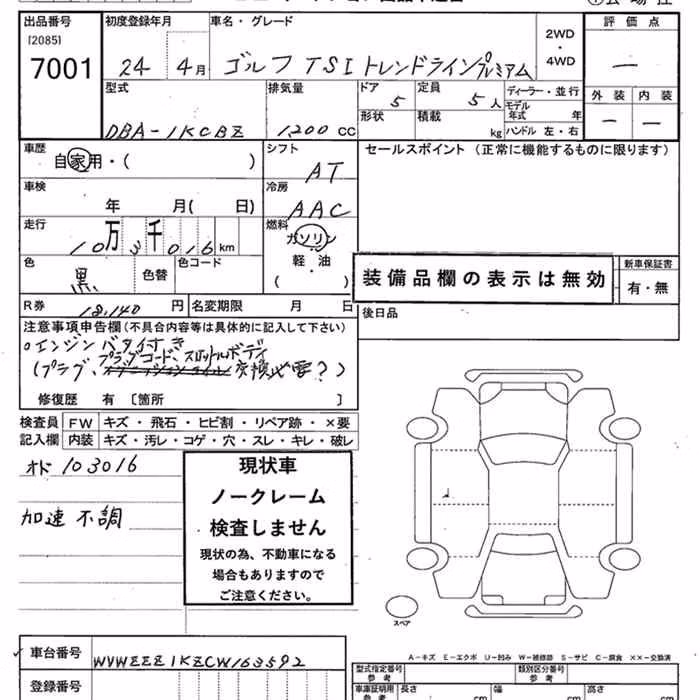 出品番号 初度登録年月 車名・グレード 評価点
[2085]
7001 24 4月 ゴルフTSIトレンドラインプレミアム 2WD・4WD —
型式 排気量 ドア 定員 ディーラー・並行 外装 内装
DBA-1KCBZ 1200 CC 5 5人 モデル年式 年 — —
形状 積載 kg ハンドル 左・右
車歴 シフト セールスポイント (正常に機能するものに限ります)
自家用・( ) AT
車検 冷房
年 月( 日) AAC
走行 燃料
10万3千016km ガソリン
軽・油
( )
色 色替 色コード
黒
装備品欄の表示は無効
新車保証書
有・無
R券 18,140円 名変期限 月 日 後日品
注意事項申告欄(不具合内容等は具体的に記入して下さい)
○エンジンバタ付き
(プラグ、プラグコード、スロットルボディ
交換必要?)
修復歴 有 〔箇所 〕
検査員 FW キズ・飛石・ヒビ割・リペア跡・×要
記入欄 内装 キズ・汚レ・コゲ・穴・スレ・キレ・破レ
オド 103016
加速不調
現状車
ノークレーム
検査しません
現状の為、不動車になる
場合もありますので
ご注意ください。
スペア
A−キズ E−エクボ U−凹み W−補修跡 S−サビ C−腐食 ××−交換済
車台番号 WVWZZZ1KZCW163592
登録番号
型式指定番号 参考 類別区分番号 参考
車庫証明用 参考 長さ cm 幅 cm 高さ cm